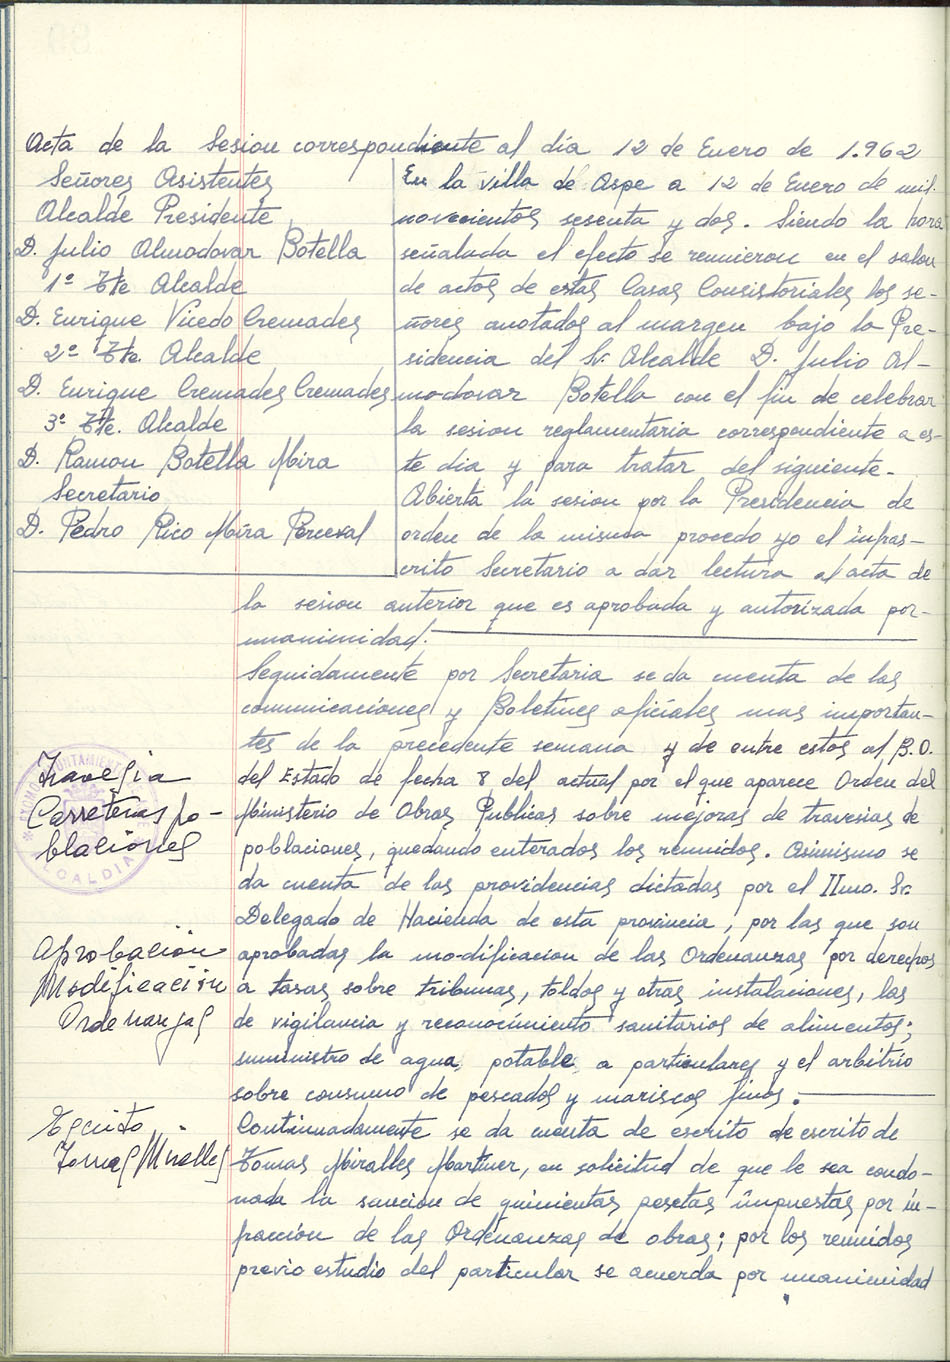 Acta de la Sesion correspondiente al día 12 de Enero de 1.962
Señores Asistentes
Alcalde Presidente
D. Julio Almodovar Botella
1º Tte Alcalde
D. Enrique Vicedo Cremades
2º Tte. Alcalde
D. Enrique Cremades Cremades
3º Tte. Alcalde
D. Ramon Botella Mira
Secretario
D. Pedro Rico Mira Perceval
En la villa de Aspe a 12 de Enero de mil
novecientos sesenta y dos. Siendo la hora
señalada el efecto se reunieron en el salon
de actos de estas Casas Consistoriales los se-
ñores anotados al margen bajo la Pre-
sidencia del Sr. Alcalde D. Julio Al-
modovar Botella con el fin de celebrar
la sesion reglamentaria correspondiente a es-
te dia y para tratar del siguiente.
Abierta la sesion por la Presidencia de
orden de la misma procedo yo el infras-
crito Secretario a dar lectura al acta de
la sesion anterior que es aprobada y autorizada por
unanimidad.
Seguidamente por Secretaria se da cuenta de las
comunicaciones y Boletines oficiales mas importan-
tes de la precedente semana y de entre estos al B.O.
del Estado de fecha 8 del actual por el que aparece Orden del
Ministerio de Obras Publicas sobre mejoras de travesias de
poblaciones, quedando enterados los reunidos. Asimismo se
da cuenta de las providencias dictadas por el IImo. Sr.
Delegado de Hacienda de esta provincia, por las que son
aprobadas la modificacion de las Ordenanzas por derechos
a tasas sobre tribunas, toldos y otras instalaciones, las
de vigilancia y reconocimiento sanitarios de alimentos;
suministro de agua potable a particulares y el arbitrio
sobre consumo de pescados y mariscos finos.
Travesia
Carreteras po-
blaciones
ALCALDIA
Aprobación
Modificación
Ordenanzas
Escrito
Tomas Miralles
Continuadamente se da cuenta de escrito de escrito de
Tomas Miralles Martinez, en solicitud de que le sea condo-
nada la sancion de quinientas pesetas impuestas por in-
fracción de las Ordenanzas de obras; por los reunidos
previo estudio del particular se acuerda por unanimidad